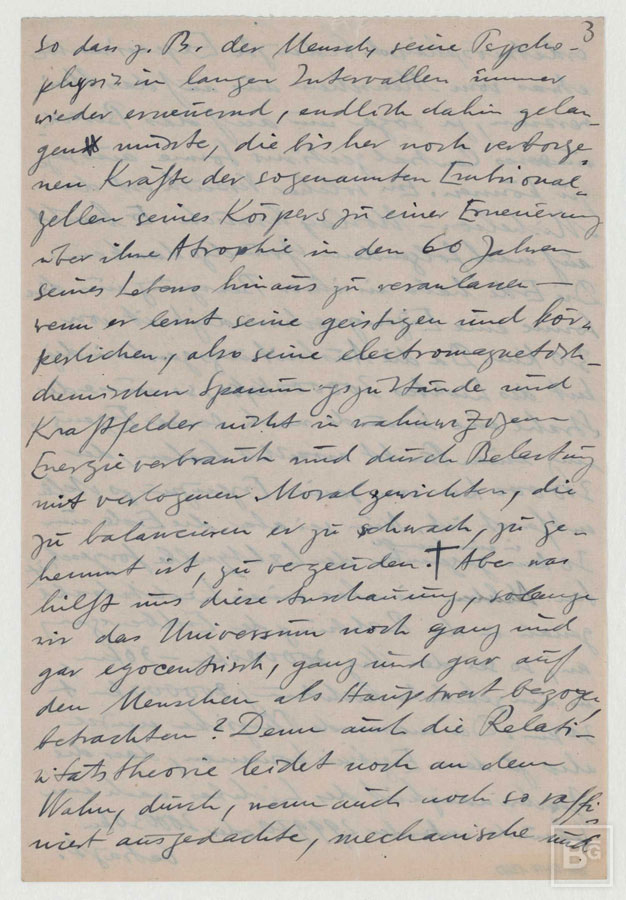 3
so dass z. B. der Mensch, seine Psycho-
physis in langen Intervallen immer
wieder erneuernd, endlich dahin gelan-
gen müsste, die bisher noch verborge-
nen Kräfte der sogenannten Embrional-
zellen seines Körpers zu einer Erneuerung
über ihre Atrophie in den 60 Jahren
seines Lebens hinaus zu veranlassen —
wenn er lernt seine geistigen und kör-
perlichen, also seine electromagnetisch-
chemischen Spannungszustände und
Kraftfelder nicht in wahnwitzigem
Energieverbrauch und durch Belastung
mit verlogenen Moralgewichten, die
zu balancieren er zu schwach, zu ge-
hemmt ist, zu vergeuden. † Aber was
hilft uns diese Anschauung, solange
wir das Universum noch ganz und
gar egocentrisch, ganz und gar auf
den Menschen als Hauptwert bezogen
betrachten? Denn auch die Relati-
vitätstheorie leidet noch an dem
Wahn, durch, wenn auch noch so raffi-
niert ausgedachte, mechanische und
BG